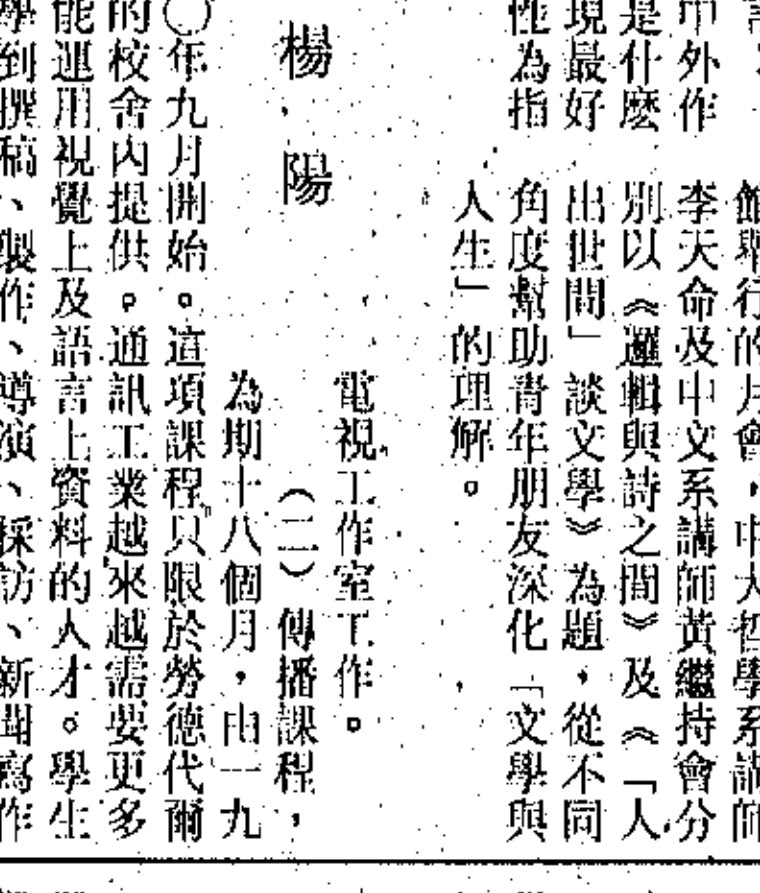 館舉行的月會，中大哲學系講師
中外作
李天命及中文系講師黃繼持會分
是什麽
別以《邏輯與詩之間》及《「人
現最好
出世間」談文學》為題，從不同
性為指
角度幫助青年朋友深化「文學與
人生」的理解。
電視工作室工作。
楊陽
（二）傳播課程，
為期十八個月，由一九
〇年九月開始。這項課程只限於勞德代爾
的校舍內提供。通訊工業越來越需要更多
能運用視覺上及語言上資料的人才。學生
學到撰稿、製作、導演、採訪、新聞寫作